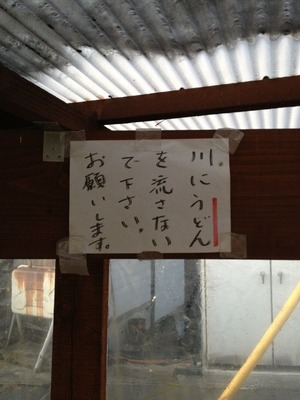 川にうどん
を流さない
で下さい。
お願いします。